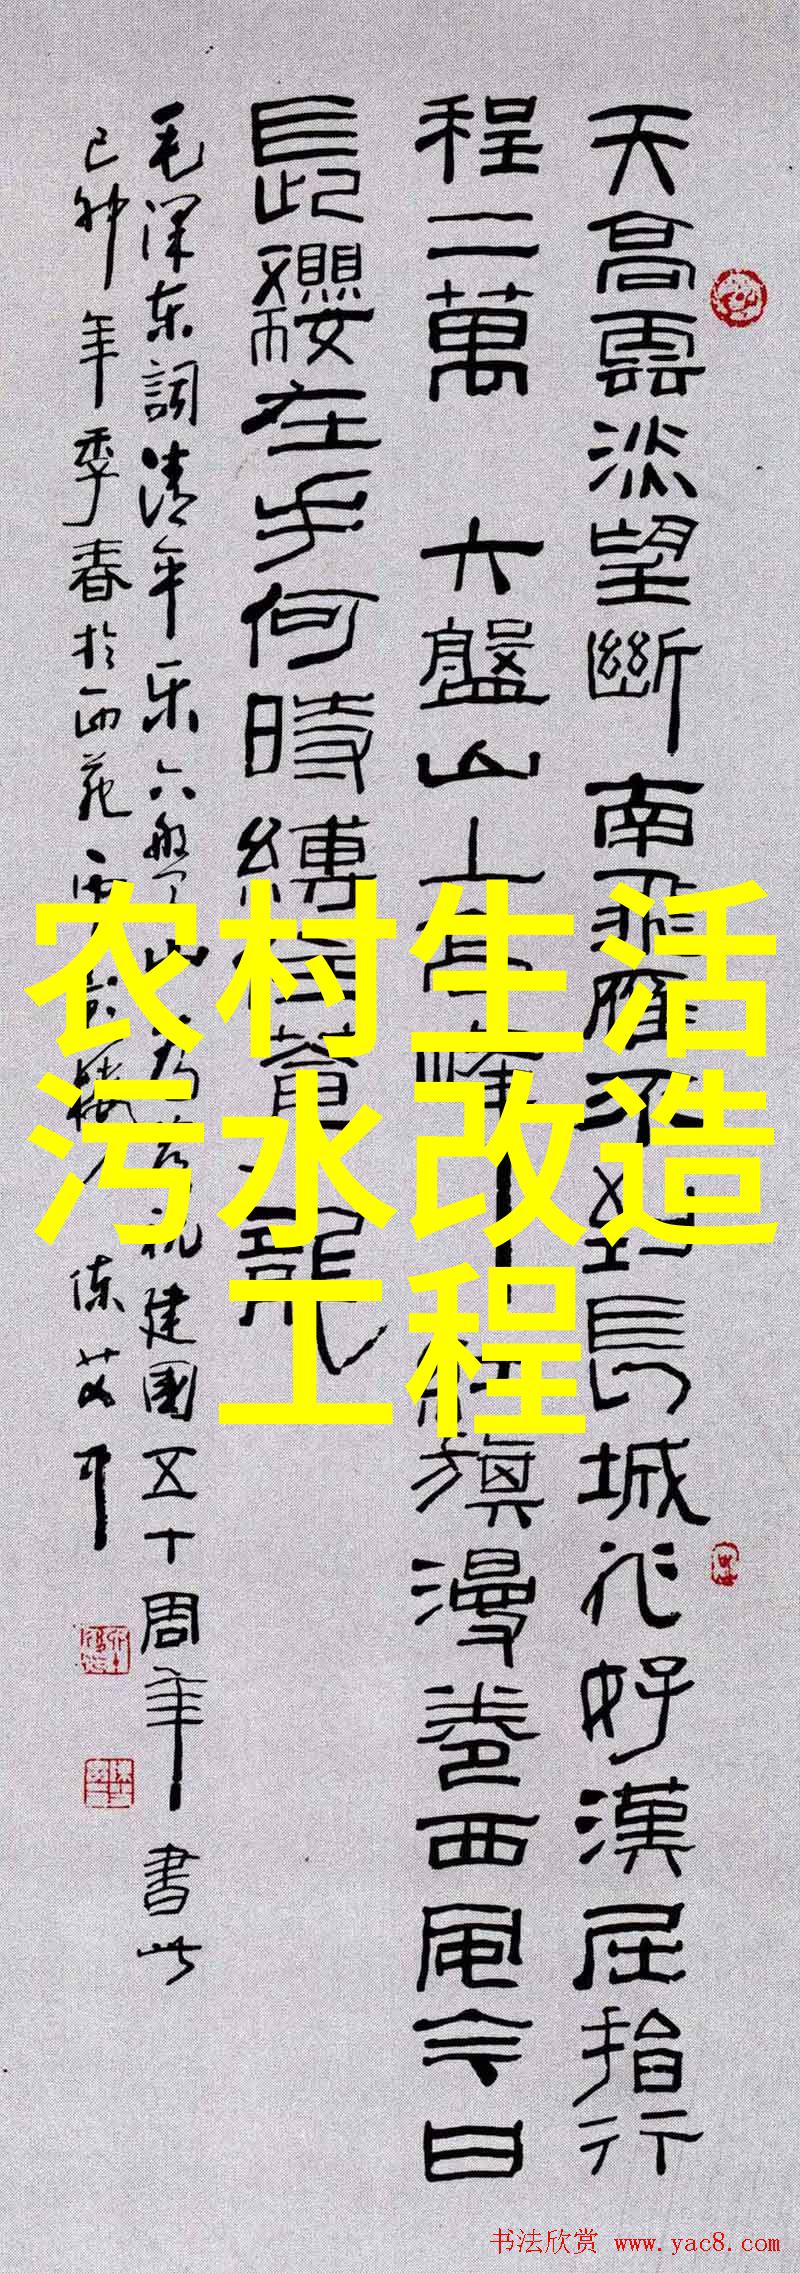 天高雲淡望斷南飛雁不到長城非好漢屈指行
程二萬 六盤山上高峰紅旗漫卷西風今日
長纓在手何時縛住蒼龍
毛泽东詞清平乐六盤山 祝建國五十周年書此
己卯年季春於西苑
农村生活
污水改造
工程
书法欣赏 www.yac8.com